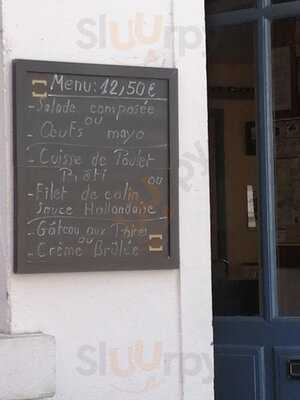 Menu: 12,50€
- Salade composée
ou
- Œufs mayo
- Cuisse de Poulet
Rôti ou
- Filet de colin
sauce Hollandaise
- Gâteau aux Poires
ou
- Crème Brûlée
sluurpy
sluurpy
sluurpy